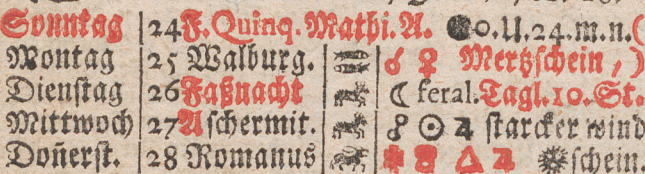 Sonntag 24 F. Quinq. Mathi. A. ● 0. U. 24. m. n. (
Montag 25 Walburg. ♓ ☌ ♀ Mertzschein, )
Dienstag 26 Faßnacht ☾ feral. Tagl. 10. St.
Mittwoch 27 Aschermit. ☍ ☉ ♃ starcker wind
Doñerst. 28 Romanus △ ♃ schein.